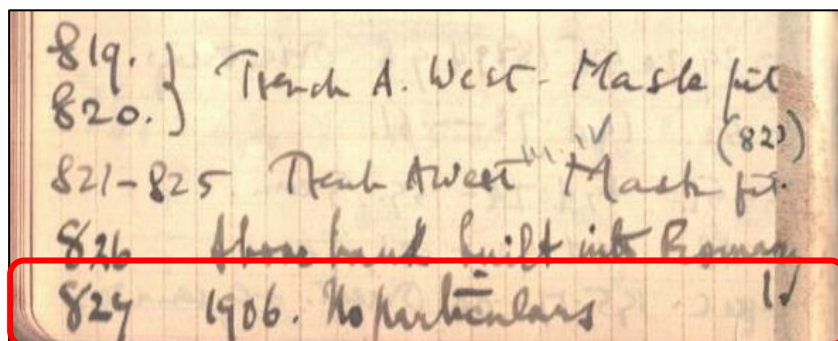 819.
820. } Trench A. West - Mask pit
(823)
821-825 Trench A West III. IV Mask pit.
826 built into Roman
827 1906. No particulars